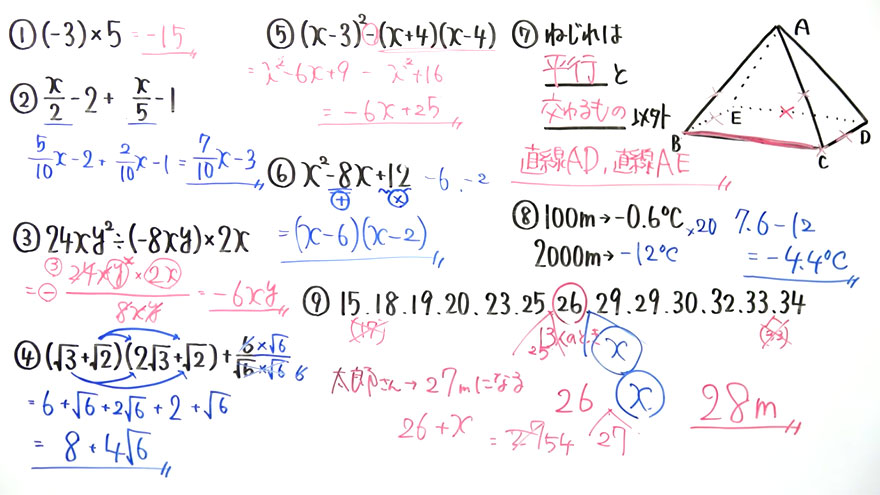 ① (-3)×5 = -15
② x/2 - 2 + x/5 - 1
5/10x - 2 + 2/10x - 1 = 7/10x - 3
③ 24xy²÷(-8xy)×2x
= ⊖ 24xy²×2x / 8xy = -6xy
③
④ (√3+√2)(2√3+√2) + 6×√6/√6×√6 6
= 6+√6+2√6+2+√6
= 8+4√6
⑤ (x-3)²-(x+4)(x-4)
= x²-6x+9 - x²+16
= -6x+25
⑥ x²-8x+12 -6, -2
+ ×
= (x-6)(x-2)
⑦ ねじれは
平行 と
交わるもの 以外
直線AD, 直線AE
A
B
E
C
D
⑧ 100m→-0.6℃ ×20 7.6-12
2000m→-12℃ = -4.4℃
⑨ 15.18.19.20.23.25.26.29.29.30.32.33.34
25
x
太郎さん→27mになる
26 x
26+x = 54 27
28m